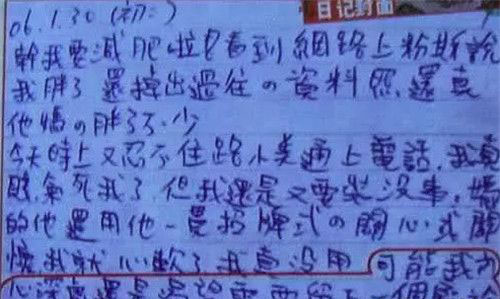 06.1.30 (初二)
日记封面
幹我要減肥啦!看到網路上粉斯說
我胖了 還 出過往の資料照.還真
他媽の胖了不少
今天晚上又忍不住跟小美通上電話.我真
敗.氣死我了 但我還是又要裝沒事.媽
的他還用他一貫招牌式の關心或關
懷我就心軟了 我真沒用 可能我內
心深處還是 一個